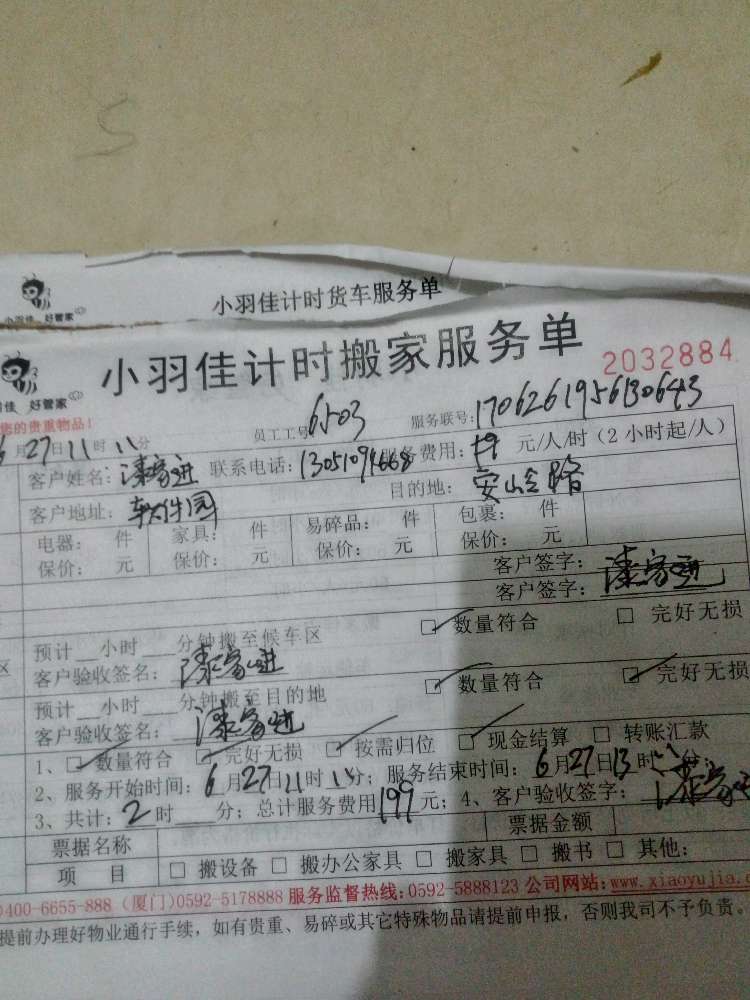 小羽佳计时货车服务单
小羽佳 好管家
小羽佳计时搬家服务单 2032884
羽佳 好管家
您的贵重物品！ 员工工号 6503 服务联号:1706261956130643
6月27日11时 分
客户姓名: 联系电话: 服务费用: 元/人/时（2小时起/人）
客户地址: 软件园 目的地: 安岭路
电器: 件 家具: 件 易碎品: 件 包裹: 件
保价: 元 保价: 元 保价: 元 保价: 元
客户签字:
客户签字:
预计 小时 分钟搬至候车区 数量符合 □ 完好无损
客户验收签名:
预计 小时 分钟搬至目的地 数量符合 完好无损
客户验收签名:
1、 数量符合 完好无损 按需归位 现金结算 □ 转账汇款
2、服务开始时间: 6月27日11时 分; 服务结束时间: 6月27日13时 分;
3、共计: 2时 分; 总计服务费用 199元; 4、客户验收签字:
票据名称 票据金额
项 目 □ 搬设备 □ 搬办公家具 □ 搬家具 □ 搬书 □ 其他:
400-6655-888（厦门)0592-5178888 服务监督热线:0592-5888123 公司网站:www.xiaoyujia.c
提前办理好物业通行手续，如有贵重、易碎或其它特殊物品请提前申报，否则我司不予负责。